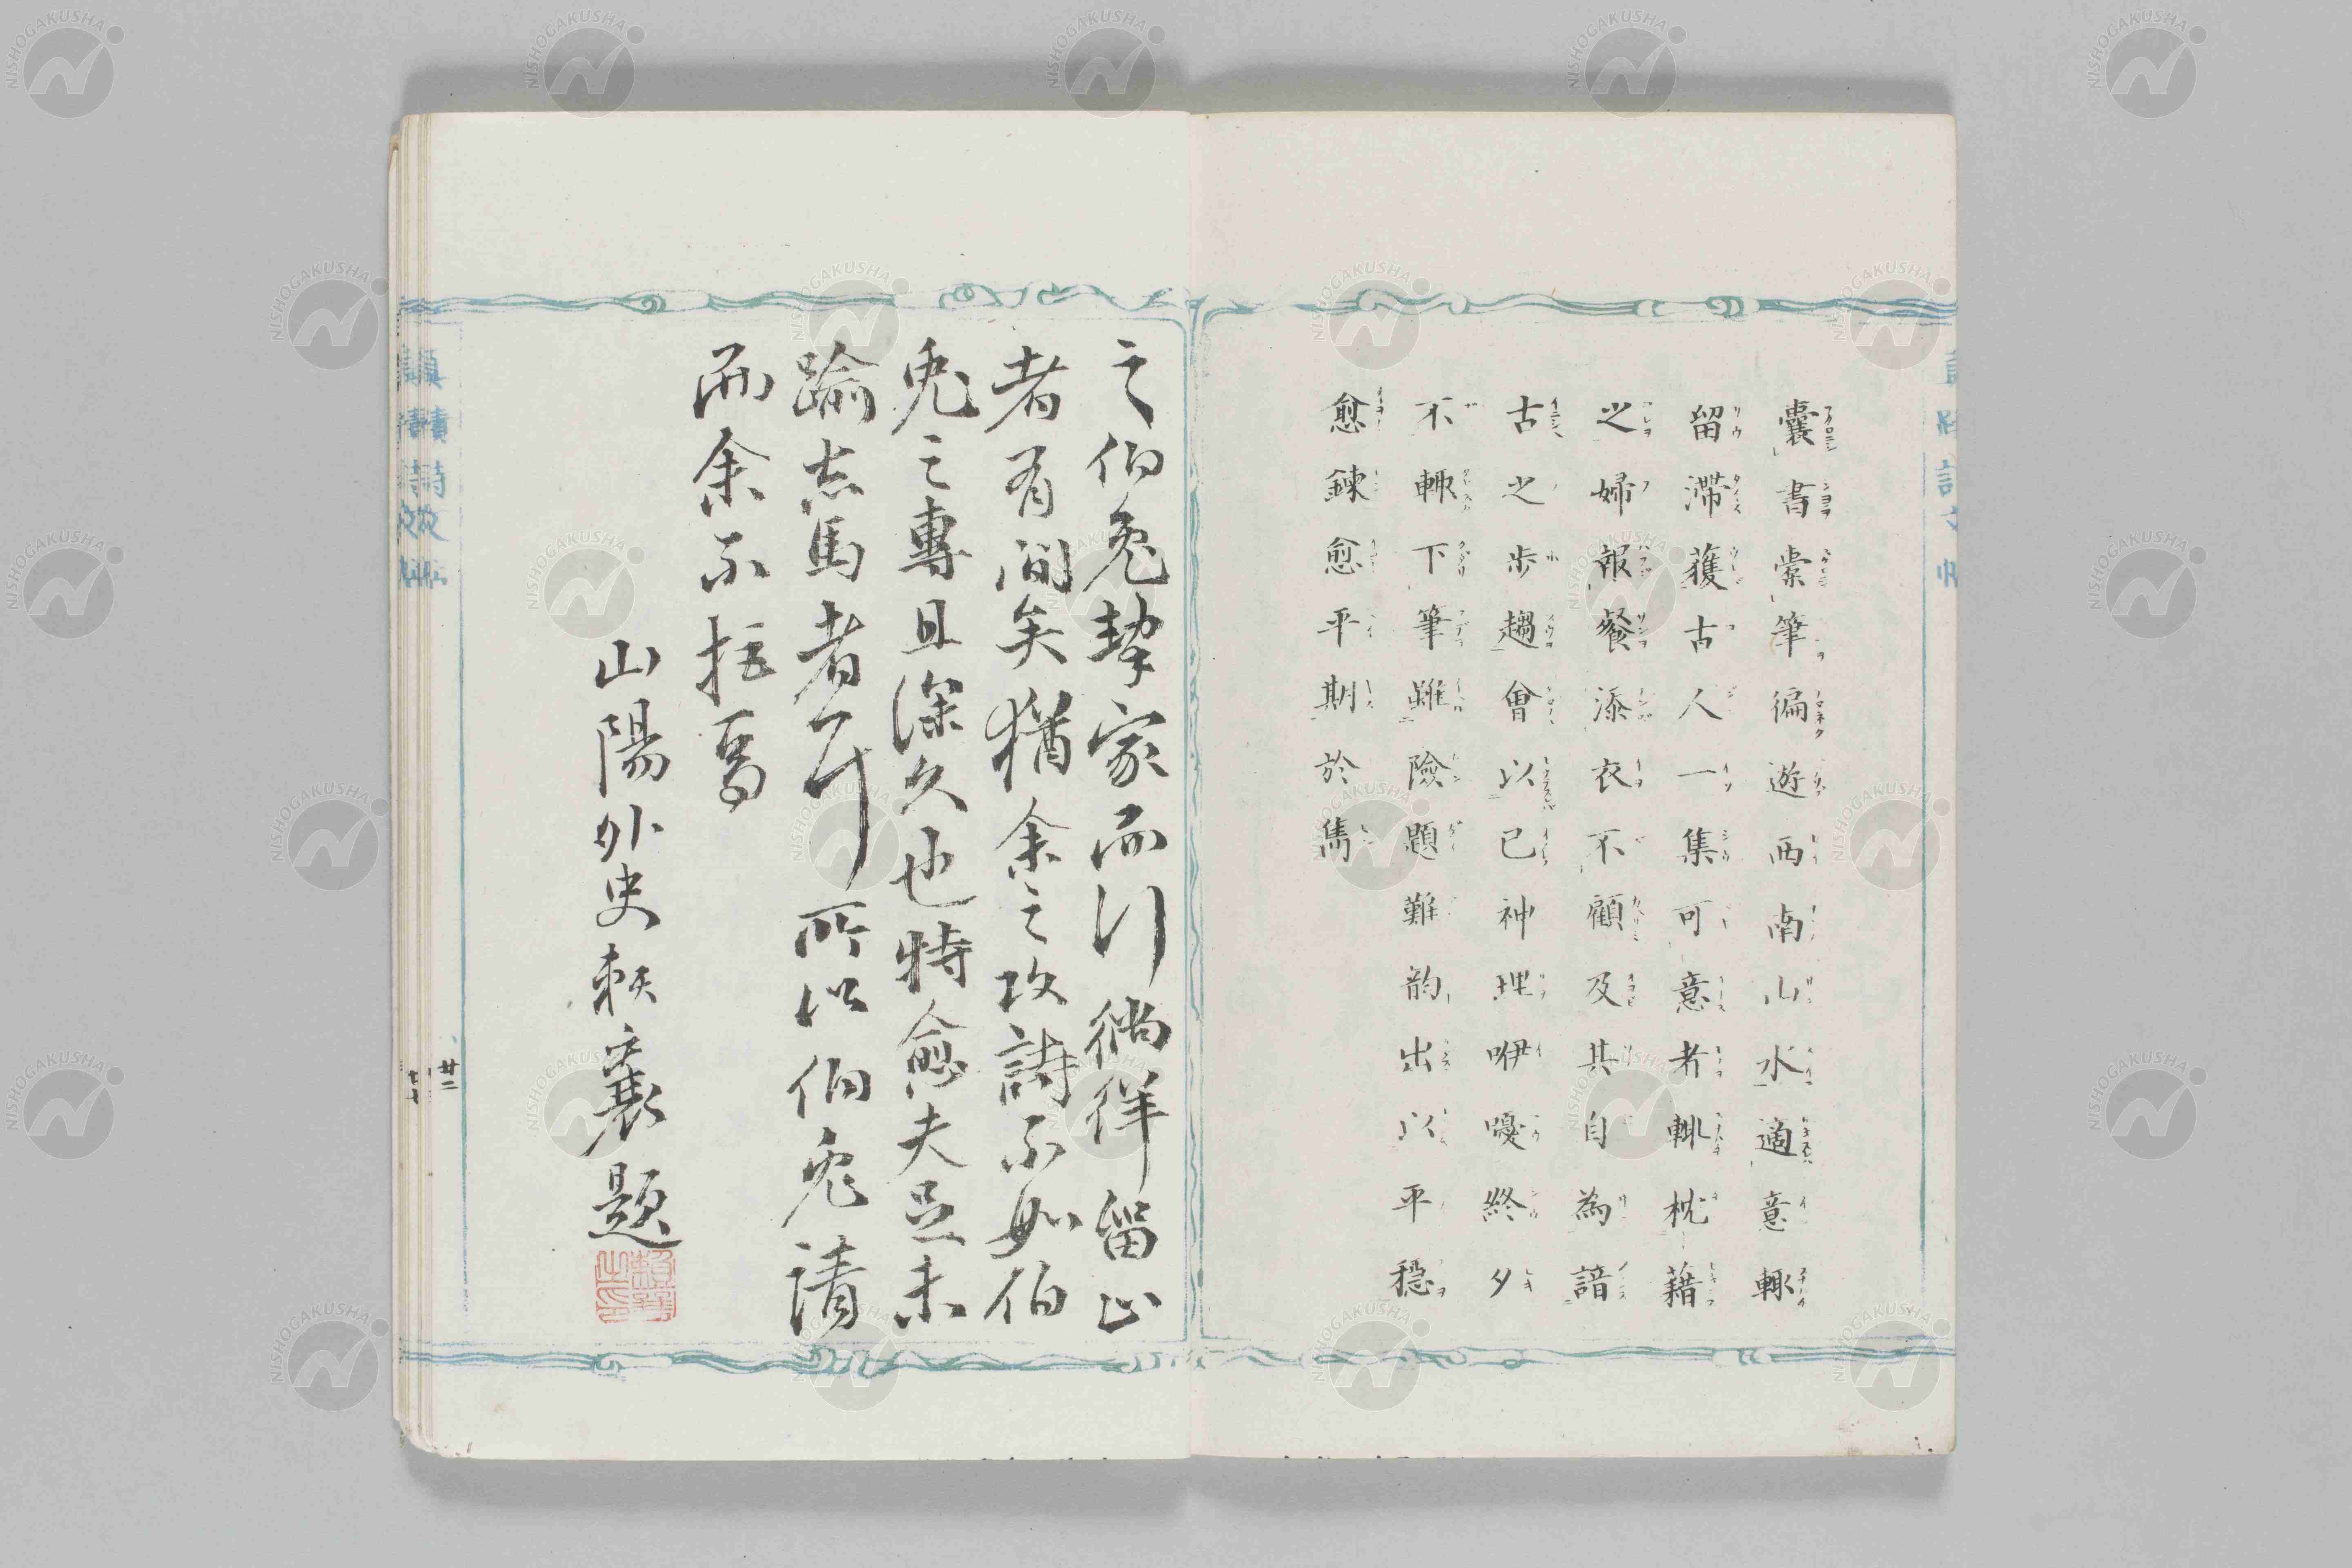 囊書橐筆徧遊西南山水適意輙
留滯獲古人一集可意者輙枕藉
之婦報餐添衣不顧及其自為諳
古之步趨會以已神理咿嚘終夕
不輙下筆雖險題難韵出以平穏
愈鍊愈平期於雋
之伯兔挈家而行徜徉留止
者有間矣猶余之攻詩不如伯
兔之專且深久也特愈夫足未
踰志馬者耳所以伯兔請
而余不拒焉
山陽外史賴襄題
廿二
NISHOGAKUSHA